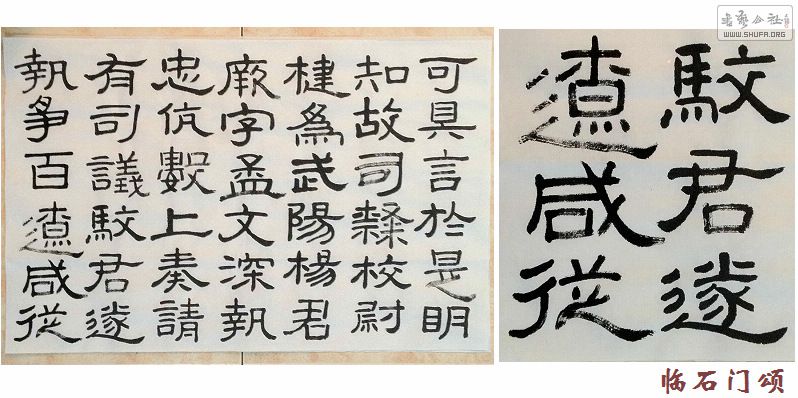 可具言於是明
知故司隸校尉
楗爲武陽楊君
厥字孟文深執
忠伉數上奏請
有司議馼君遂
執爭百遼咸從
馼君遂
遼咸從
临石门颂
書藝公社
WWW.SHUFA.ORG